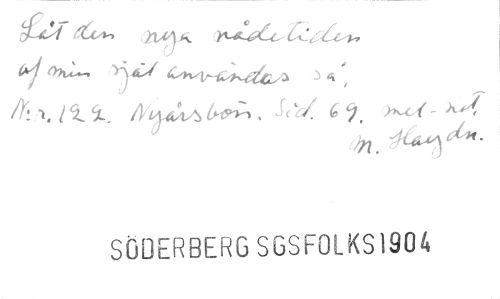 Låt den nya nådetiden
af min själ användas så,
N:r. 122. Nyårsbön. Sid. 69. mel-not.
M. Haydn.
SÖDERBERG SGSFOLKS1904